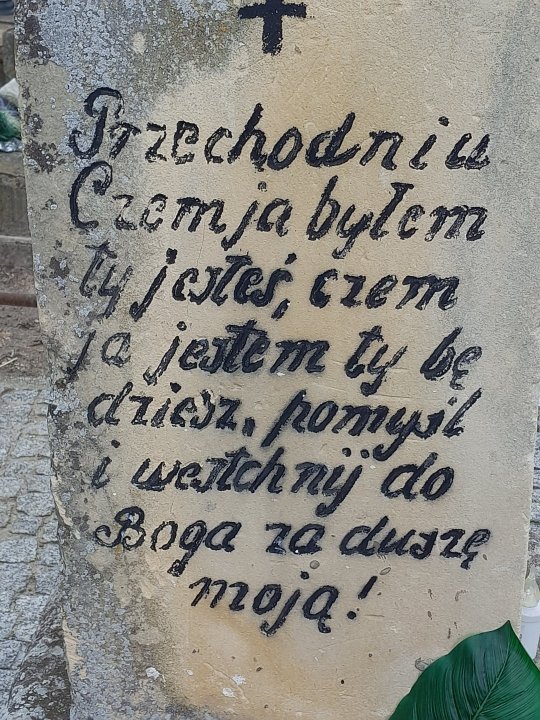 Przechodniu
Czem ja byłem
ty jesteś, czem
ja jestem ty bę
dziesz, pomyśl
i westchnij do
Boga za duszę
moją!